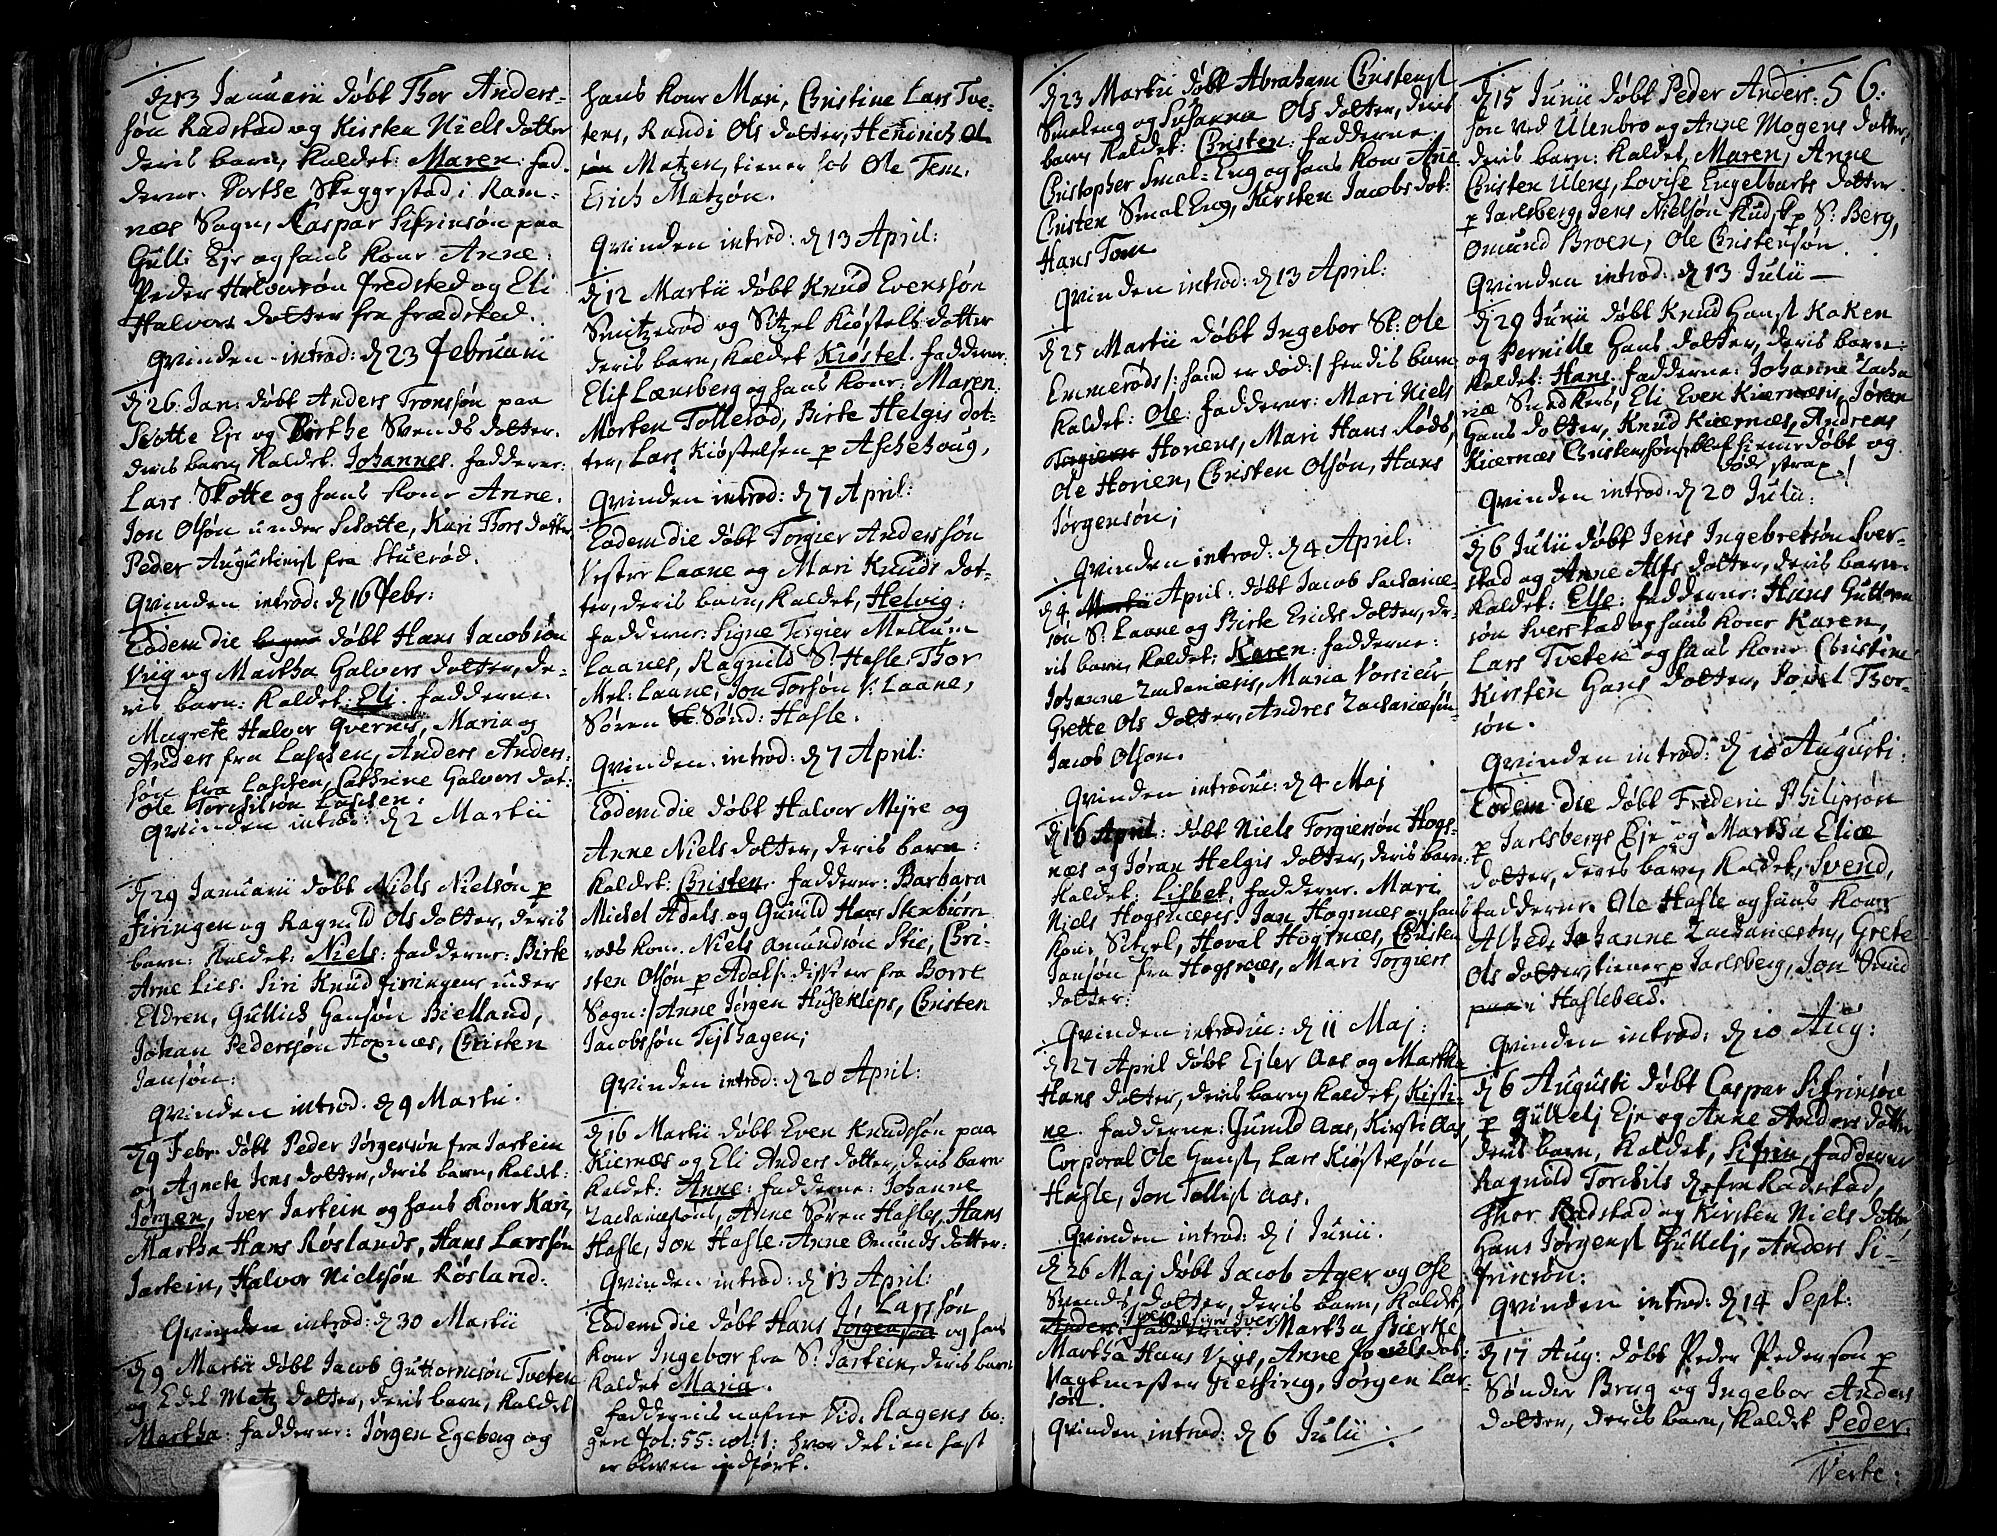 d 13 Januarii döbt Thor Anders-
søn Radstad og Kirsten Niels dotter
deris barn, kaldet: Maren: fad-
derne. Dorthe Skeggestad i Ram-
næs Sogn, Caspar Sifrinsøn paa
Gulli Eje og hans Kone Anne.
Peder Halvorsøn fredsted og Eli
Halvors dotter fra frædsted.
Qvinden introd: d 23 februarii
d 26 Jan: döbt Anders Tronsøn paa
Skotte Eje og Birthe Svends dotter.
deris barn kaldet. Johannes. fadderne:
Lars Skotte og hans kone Anne.
Jon Olsøn under Skotte, Kari Thors dotter
Peder Augustinus fra Stuerød.
Qvinden introd: d 16 Febr:
Eodem die döbt Hans Jacobsøn
Viig og Martha Halvors dotter, de-
ris barn: kaldet Eli. fadderne:
Magrete Halvor Qvernes, Maria og
Anders fra Laschen, Anders Anders-
søn fra Laschen, Cathrine Halvors dot:
Ole Torchilsøn Laschen.
Qvinden introd: d 2 Martii
d 29 Januarii döbt Niels Nielsøn p
firingen og Ragnild Ols dotter, deris
barn: kaldet: Niels: fadderne: Birte
Arne Lies: Siri Knud firingens under
Eldren, Gullich Hansøn Bielland,
Johan Pedersøn Hoxnæs, Christen
Jansøn:
Qvinden introd: d 9 Martii.
d 9 Febr. döbt Peder Jørgensøn fra Jartein
og Agnete Jens dotter, deris barn, kaldet:
Jørgen, Iver Jartein og hans kone Kari,
Martha Hans Røslands, Hans Larssøn
Jartein, Halvor Nielsøn Røsland.
Qvinden introd: d 30 Martii
d 9 Martii döbt Jacob Guttormsøn Tveten
og Edel Matz dotter, deris barn, kaldet
Martha: fadderne: Jørgen Egeberg og
hans kone Mari, Christine Lars Tve-
tens, Randi Ols dotter, Henrich Ol
søn Matzen, tiener hos Ole Tem.
Erich Matzøn.
Qvinden introd: d 13 April:
d 12 Martii döbt Knud Evenssøn
Smitzerød og Sitzel Kiøstels dotter
deris barn, kaldet Kiøstel. fadderne:
Elif Lænsberg og hans kone: Maren:
Morten Tollerød, Birte Helgis dot-
ter, Lars Kiøstelsen p Aschehoug,
Qvinden introd: d 7 April:
Eodem die döbt Torgier Anderssøn
Vester Laane og Mari Knuds dot-
ter, deris barn, kaldet, Helvig:
fadderne: Signe Torgier Mellum
Laanes, Ragnild S: Hasle Thor
Mel: Laane, Jon Torsøn V: Laane,
Søren Sønd: Hasle.
Qvinden introd: d 7 April:
Eodem die döbt Halvor Mejre og
Anne Niels dotter, deris barn:
kaldet: Christen. fadderne: Barbara
Michel Adals og Gunild Hans Stenbiørn
røds kone. Niels Amundsøn Stie, Chri-
sten Olsøn p Adals: disse er fra Borre
Sogn:/ Anne Jørgen Husekleps, Christen
Jacobssøn Tejlhagen;
Qvinden introd: d 20 April:
d 16 Martii döbt Even Knudssøn paa
Kiernæs og Eli Anders dotter, deris barn
kaldet: Anne: fadderne: Johanne
Zachariæsøns, Anne Søren Hasles, Hans
Hasle, Jon Hasle. Anne Omunds dotter:
Qvinden introd: d 13 April:
Larssøn
Eodem die döbt Hans Jørgensøn og hans
kone Ingebor fra S: Jartein, deris barn
kaldet Maria.
faddernis nafne Vid: Kagens bo-
gen fol: 55: col: 1: hvor det i en hast
er bleven indført.
d 23 Martii döbt Abraham Christens
Smaleng og Susanna Ols dotter, deris
barn, kaldet: Christen: fadderne.
Christopher Smal-Eng og hans kone Ane
Christen Smal Eng, Kirsten Jacobs dot:
Hans Tom
Qvinden introd: d 13 April:
d 25 Martii döbt Ingebor Sl: Ole
Emmerøds /: hand er död:/ hendis barn
kaldet: Ole: fadderne: Mari Niels
Torgiern Horiens, Mari Hans Røds,
Ole Horien, Christen Olsøn, Hans
Jørgensøn;
Qvinden introd: d 4 April:
d 4, Martii April: döbt Jacob Zachariæ
søn S: Laane og Birte Erichs dotter, de-
ris barn, kaldet: Karen: fadderne:
Johanne Zachariæsens, Maria Vorsieur
Grette Ols dotter, Andres Zachariæsøn
Jacob Olsøn.
Qvinden introduc: d 4 Maj
d 16 April: döbt Niels Torgiersøn Hogs-
næs og Jøran Helgis dotter, deris barn
kaldet: Lisbet. fadderne. Mari
Niels Hogsnæses. Jan Hogsnæs og hans
kone Sitzel, Hoval Hogsnæs, Christen
Jansøn fra Hogsnæs, Mari Torgiers
dotter:
Qvinden introduc: d 11 Maj:
d 27 April döbt Ejler Aas og Martha
Hans dotter, deris barn kaldet, Kisti-
ne. fadderne: Gunild Aas, Kirsti Aas,
Corporal Ole Hans, Lars Kiøstelsøn
Hasle, Jon Tollis Aas.
Qvinden introd: d 1 Junii.
d 26 Maj döbt Jacob Ager og Ose
Svends dotter, deris barn, kaldet,
Anders: fadderne: Martha Bierke
Martha Hans Vigs, Anne Povels dot:
Vagtmester Giessing, Jørgen Lar-
søn.
Qvinden introd: d 6 Julii
56:
d 15 Junii döbt Peder Anders:
søn ved Ulenbro og Anne Mogens dotter,
deris barn: kaldet, Maren, Anne
Christen Ulens, Lovise Engelbarts dotter
p Jarlsberg, Jens Nielsøn Kudsk p St: Berg,
Omund Broen, Ole Christensøn.
Qvinden introd: d 13 Julii –
d 29 Junii döbt Knud Hans Kaken
og Pernille Hans dotter, deris barn:
kaldet: Hans. fadderne: Johanne Zacha
riæ Smedkers, Eli Even Kiernæsis, Jøran
Hans dotter, Knud Kiernæs, Andreas
Kiernæs Christensøn/: blef hiemmedöbt og
döde strax:/
Qvinden introd: d 20 Julii:
d 6 Julii döbt Jens Ingebretsøn Sver-
stad og Anne Alfs dotter, deris barn
kaldet: Else: fadderne: Hans Guttorm
søn Sverstad og hans kone Karen,
Lars Tveten og hans kone Christine
Kirsten Hans dotter, Povel Thor-
søn.
Qvinden introd: d 10 Augusti:
Eodem die döbt Frederic Philipsøn
p Jarlsbergs Eje og Martha Eliæ
dotter, deris barn, kaldet, Svend,
fadderne. Ole Hasle og hans kone
Alhed, Johanne Zachariæsøns, Grete
Ols dotter, tiener p Jarlsberg, Jon Svend
paa i Haslebeed.
Qvinden introd: d 10 Aug:
d 6 Augusti döbt Caspar Sifrinsøn
p Gullelj Eje og Anne Anders dotter
deris barn, kaldet, Sifrin, fadderne
Ragnild Torchils d fra Radstad,
Thor Radstad og Kirsten Niels dotter,
Hans Jørgens Gullelj, Anders Si-
frinsøn.
Qvinden introd: d 14 Sept:
d 17 Aug: döbt Peder Pedersøn p
Sønder Brug og Ingebor Anders
dotter, deris barn, kaldet Peder.
Verte: